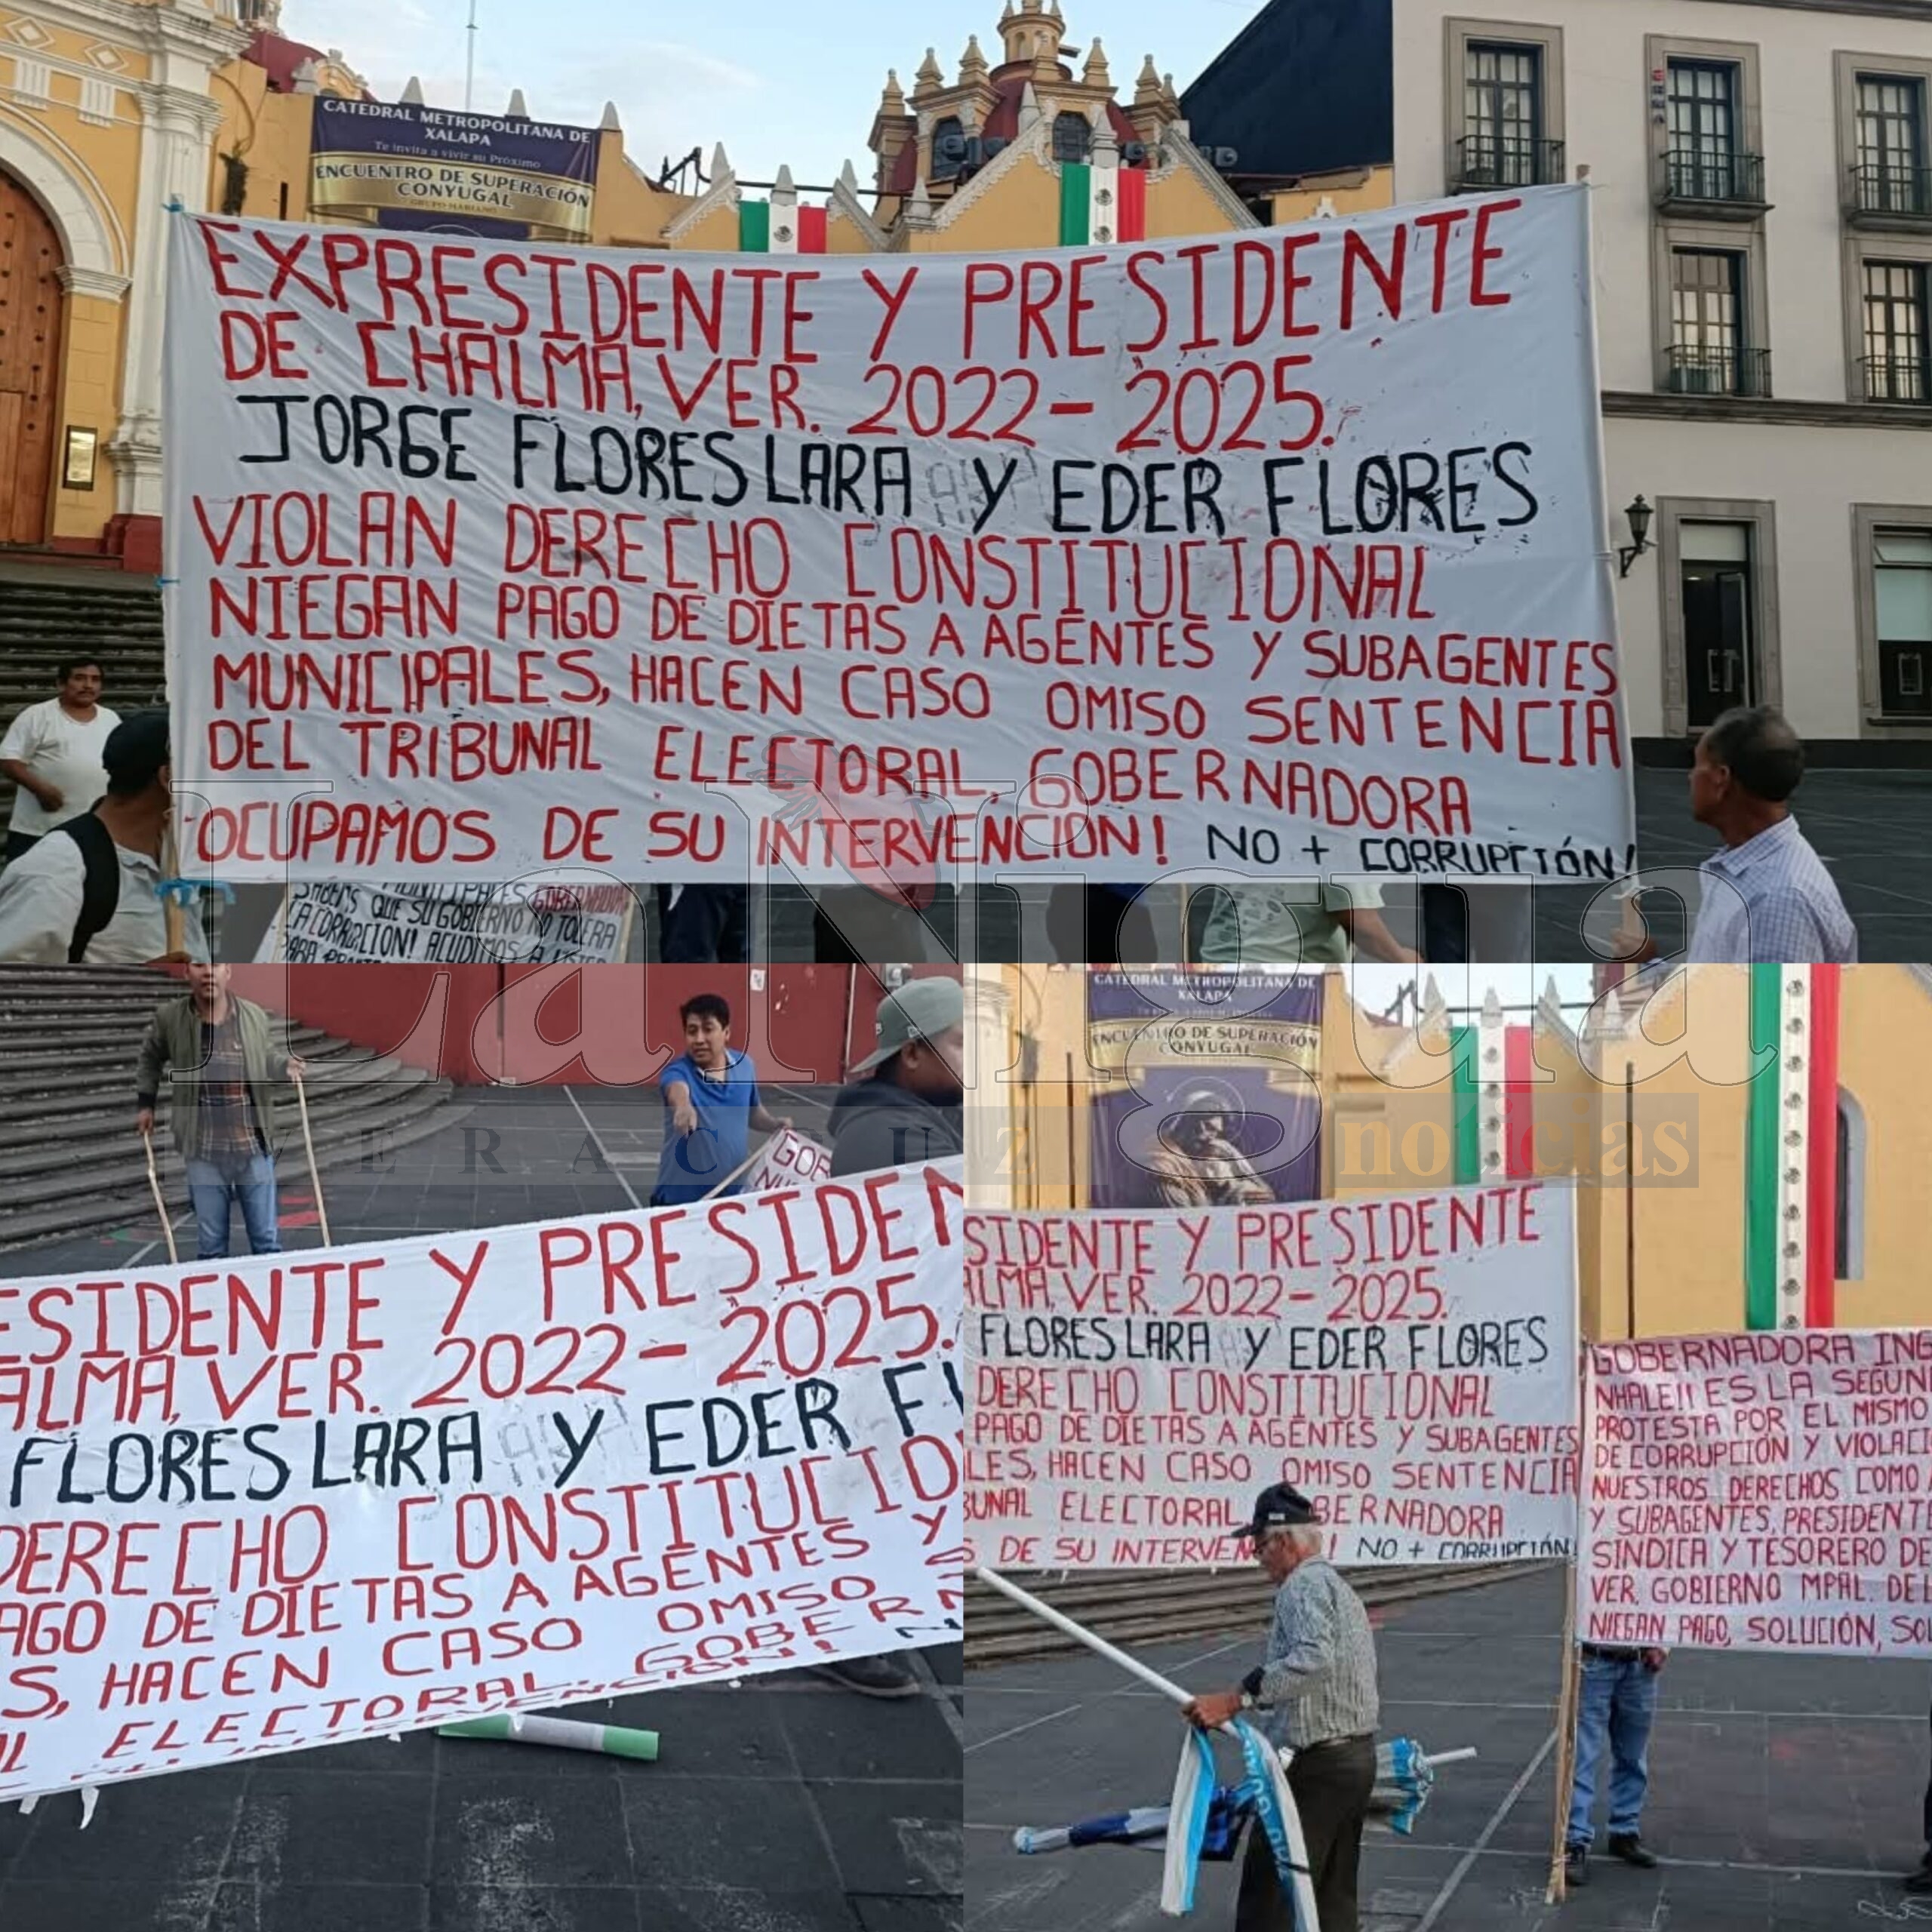 CATEDRAL METROPOLITANA DE
XALAPA
Te invita a vivir su Próximo
ENCUENTRO DE SUPERACIÓN
CONYUGAL
GRUPO MARIANO
EXPRESIDENTE Y PRESIDENTE
DE CHALMA, VER. 2022-2025.
JORGE FLORES LARA Y EDER FLORES
VIOLAN DERECHO CONSTITUCIONAL
NIEGAN PAGO DE DIETAS A AGENTES Y SUBAGENTES
MUNICIPALES, HACEN CASO OMISO SENTENCIA
DEL TRIBUNAL ELECTORAL, GOBERNADORA
OCUPAMOS DE SU INTERVENCION! NO + CORRUPCIÓN!
MUNICIPALES GOBERNADORA
SABEMS QUE SU GOBIERNO NO TOLERA
LA CORRUPCION! ACUDIMOS A
LaNigua
VERACRUZ noticias
GOB
ESIDENTE Y PRESIDEN
ALMA, VER. 2022-2025.
FLORES LARA Y EDER F
DERECHO CONSTITUCIO
AGO DE DIETAS A AGENTES Y
S, HACEN CASO OMISO
L ELECTORAL, GOBERN
CATEDRAL METROPOLITANA DE
XALAPA
ENCUENTRO DE SUPERACIÓN
CONYUGAL
SIDENTE Y PRESIDENTE
ALMA, VER. 2022-2025.
FLORES LARA Y EDER FLORES
DERECHO CONSTITUCIONAL
PAGO DE DIETAS A AGENTES Y SUBAGENTES
LES, HACEN CASO OMISO SENTENCIA
BUNAL ELECTORAL, OBERNADORA
S DE SU INTERVEN ! NO + CORRUPCIÓN
GOBERNADORA ING
NHALE!! ES LA SEGUN
PROTESTA POR EL MISMO
DE CORRUPCIÓN Y VIOLACI
NUESTROS DERECHOS COMO
Y SUBAGENTES, PRESIDENT
SINDICA Y TESORERO DE
VER. GOBIERNO MPAL. DE
NIEGAN PAGO, SOLUCIÓN, SOL